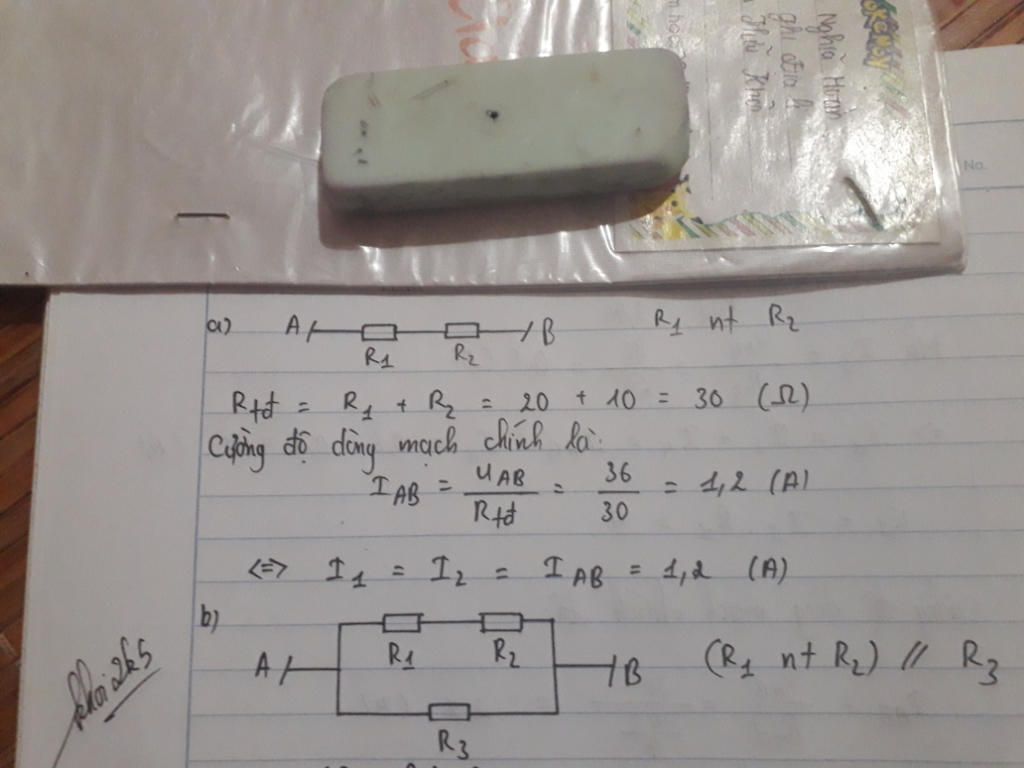 POKEMON
Nghĩa Hoàn
No.
a) A R1 R2 B R1 nt R2
Rtđ = R1 + R2 = 20 + 10 = 30 (Ω)
Cường độ dòng mạch chính là:
IAB = UAB / Rtđ = 36 / 30 = 1,2 (A)
<=> I1 = I2 = IAB = 1,2 (A)
b) A R1 R2 R3 B (R1 nt R2) // R3
khôi2k5